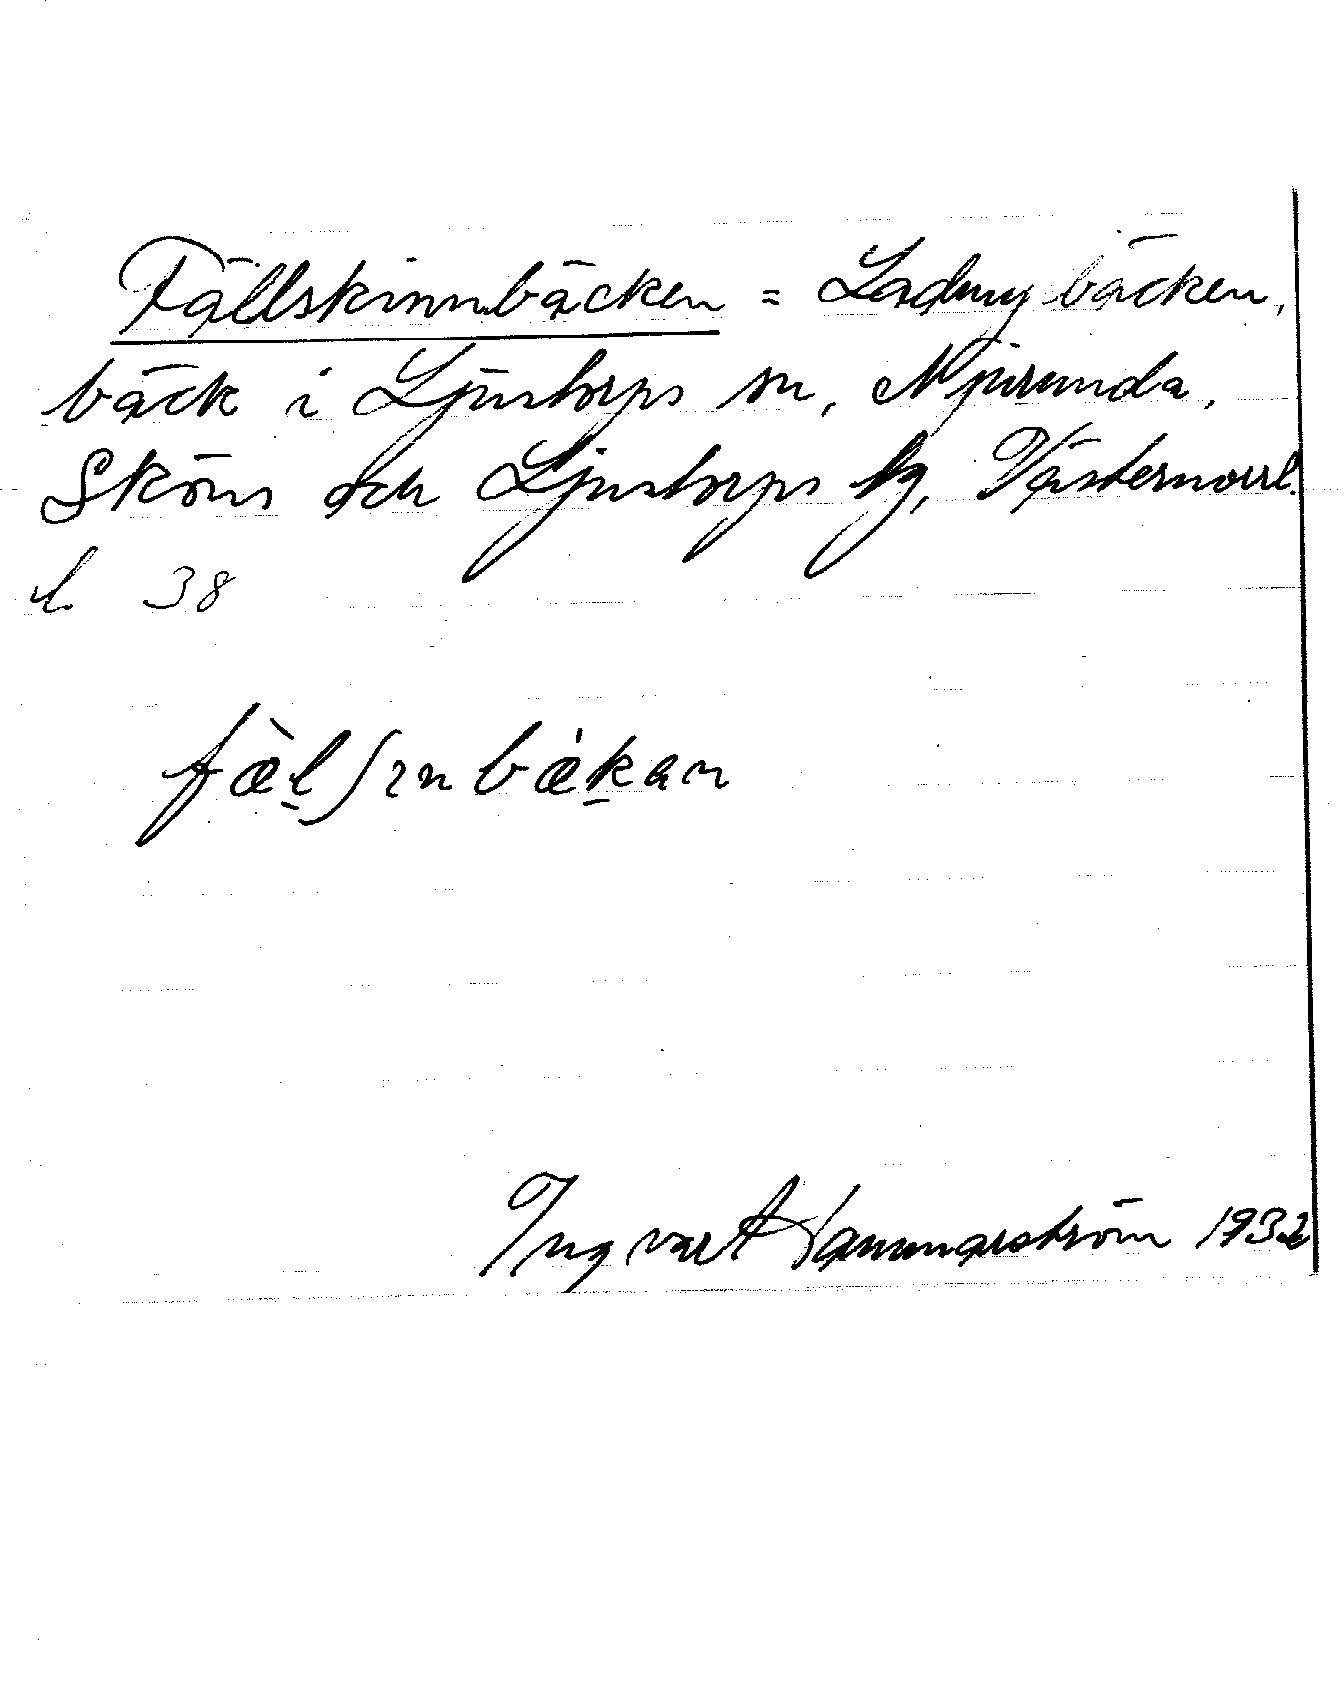 Fällskinnbäcken = Ladmyrbäcken,
bäck i Ljustorps sn, Njurunda,
Sköns och Ljustorps tg, Västernorrl.
l. 38
fæ̀l̠ʃɪnbæ̀k̠an
Ingvar Hammarström 1932